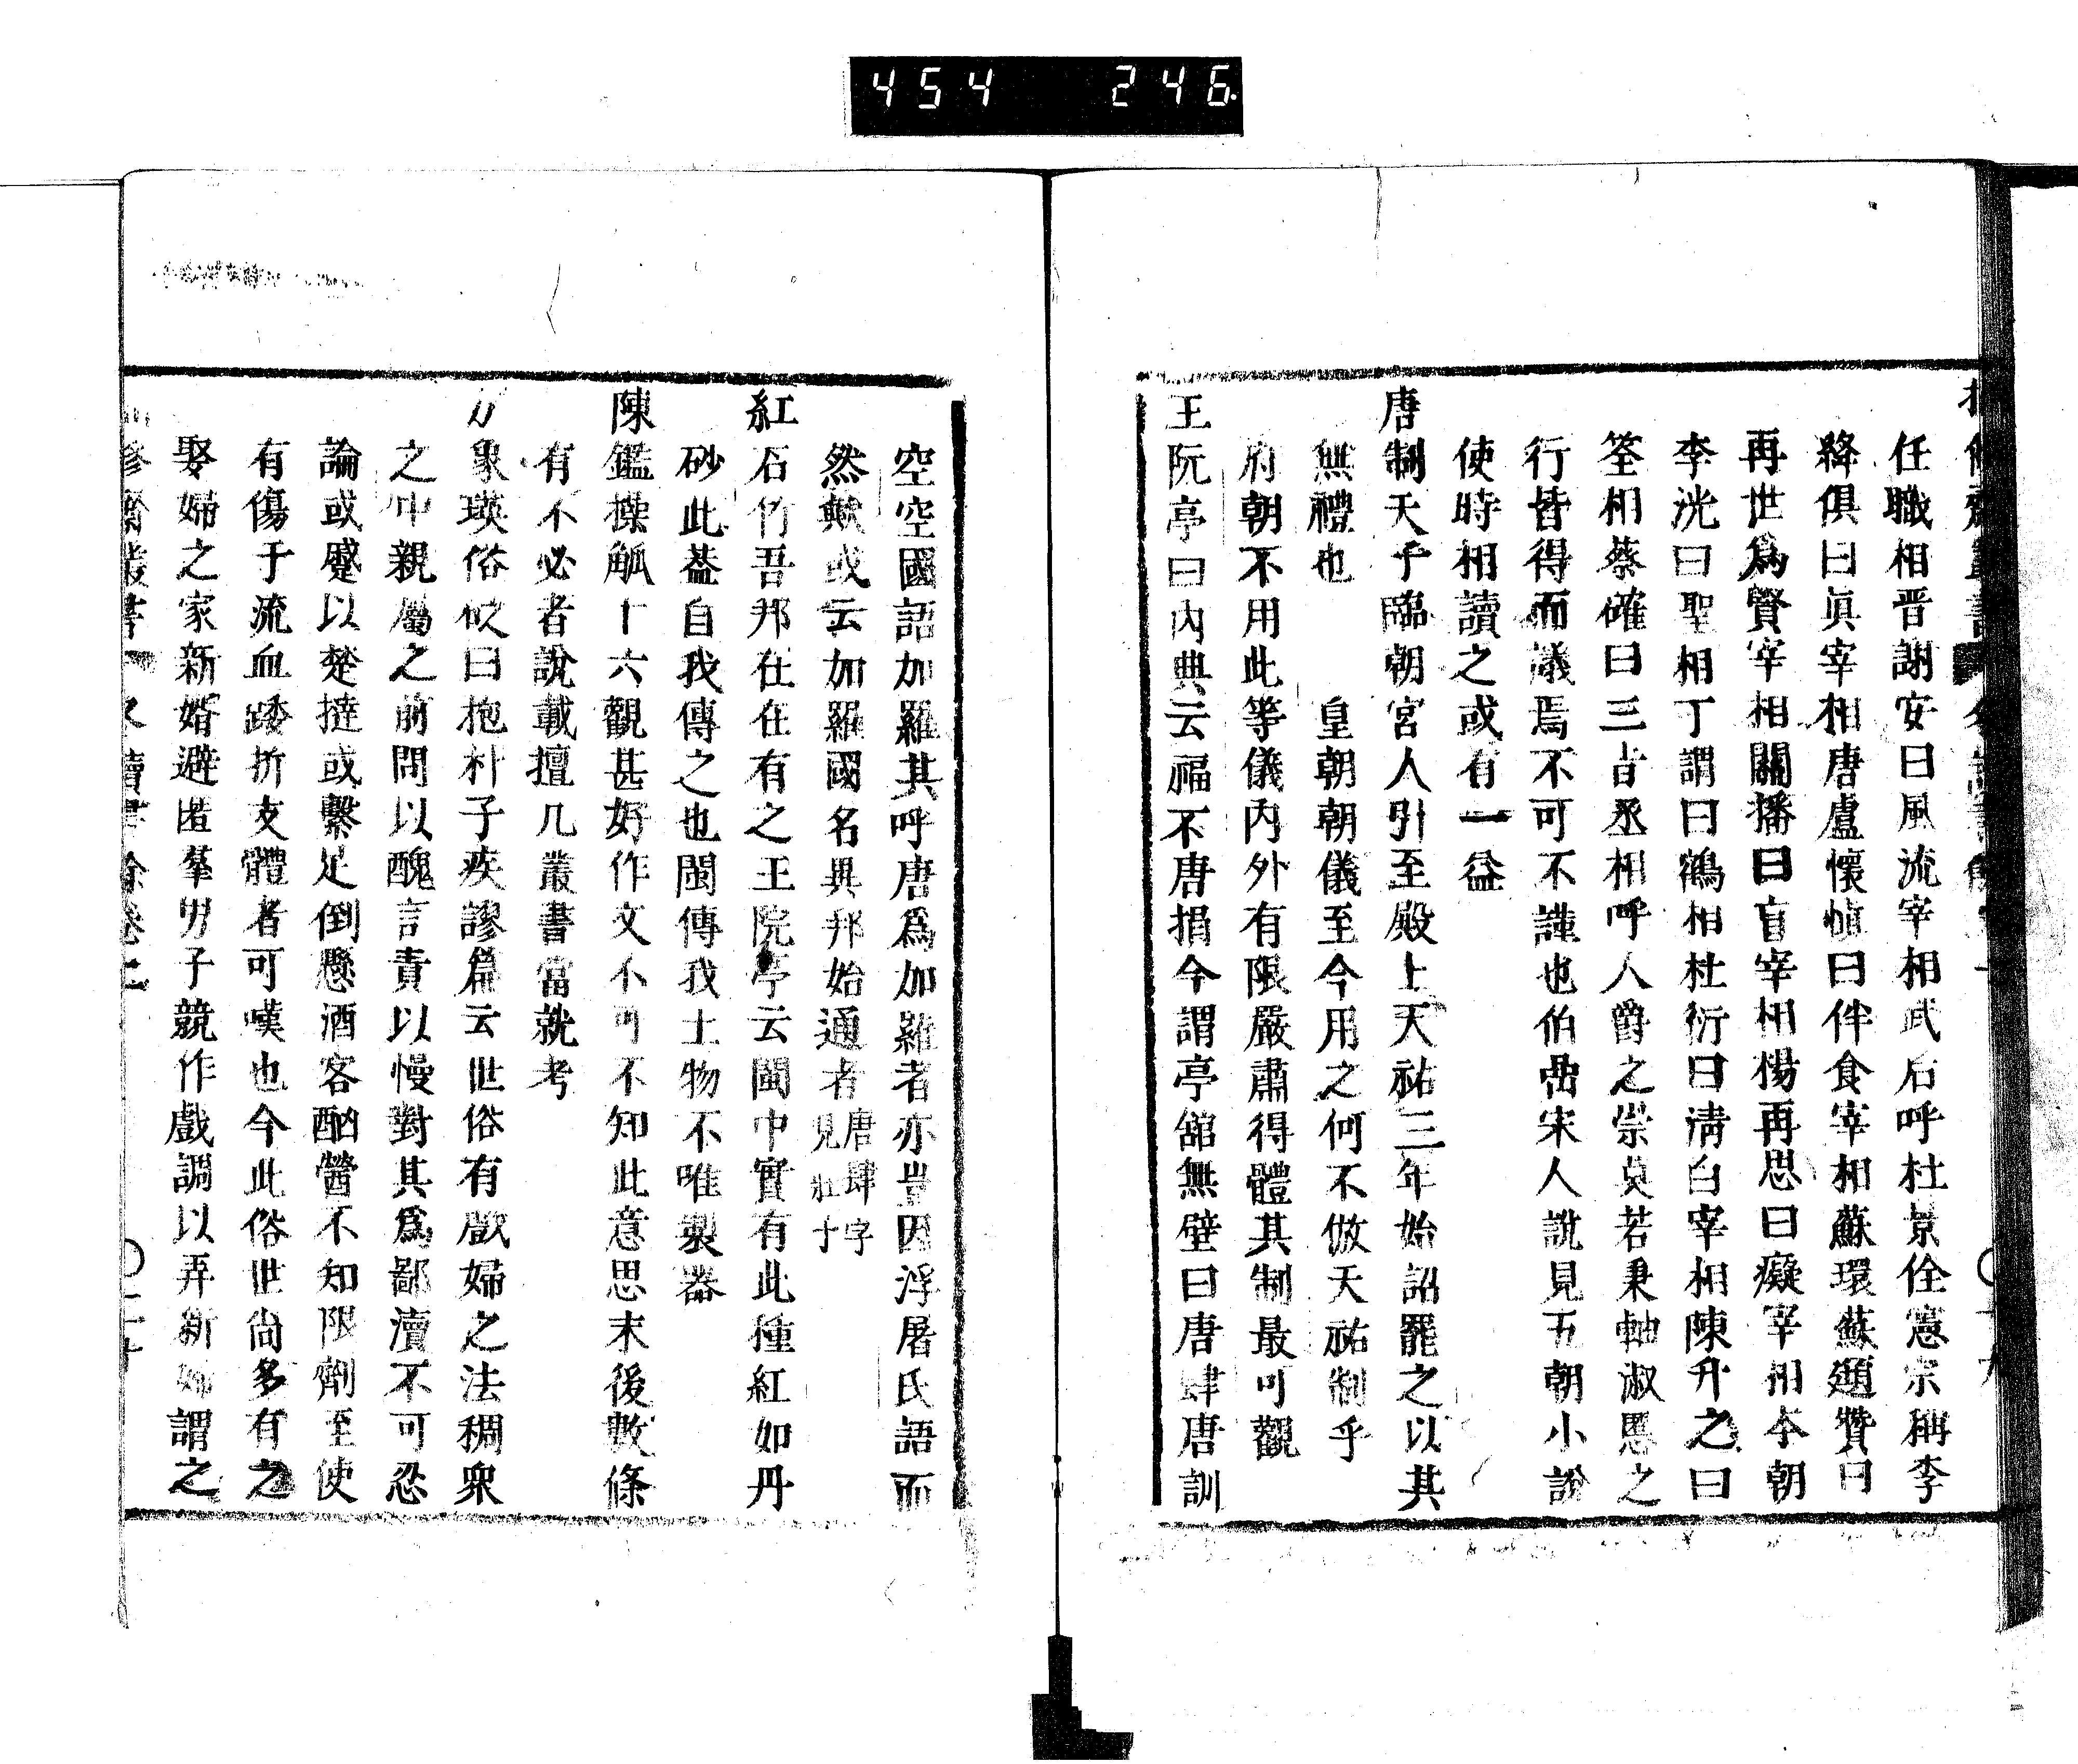 454 246
任職相晋謝安曰風流宰相武后呼杜景佺憲宗稱李
絳俱曰眞宰相唐盧懷愼曰伴食宰相蘇環蘇頲贊曰
再世爲賢宰相關播曰盲宰相楊再思曰癡宰相本朝
李沆曰聖相丁謂曰鶴相杜衍曰淸白宰相陳升之曰
筌相蔡確曰三旨丞相呼人爵之崇莫若秉軸淑慝之
行皆得而議焉不可不謹也伯嵒宋人說見五朝小說
使時相讀之或有一益
唐制天子臨朝宮人引至殿上天祐三年始詔罷之以其
無禮也 皇朝朝儀至今用之何不倣天祐制乎
府朝不用此等儀內外有限嚴肅得體其制最可觀
王阮亭曰內典云福不唐捐今謂亭舘無壁曰唐肆唐訓
空空國語加羅其呼唐爲加羅者亦豈因浮屠氏語而
然歟或云加羅國名異邦始通者唐肆字見莊子
紅石竹吾邦在在有之王院亭云閩中實有此種紅如丹
砂此葢自我傳之也閩傳我土物不唯製器
陳鑑操觚十六觀甚好作文不可不知此意思末後數條
有不必者說載擅几叢書當就考
象瑛俗砭曰抱朴子疾謬篇云世俗有戲婦之法稠衆
之中親屬之前問以醜言責以慢對其爲鄙瀆不可忍
論或蹙以楚撻或繫足倒懸酒客酗醟不知限劑至使
有傷于流血踒折支體者可嘆也今此俗世尙多有之
娶婦之家新婿避匿羣男子競作戲調以弄新婦謂之